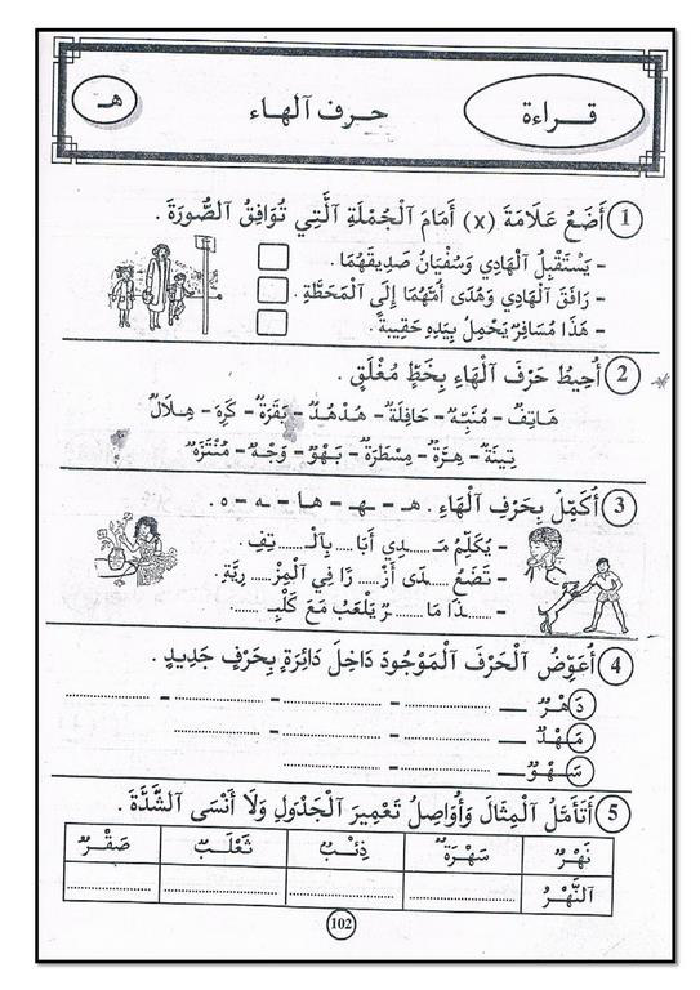 قــراءة
حـرف ٱلهـاء
هـ
1 أَضَعُ عَلَامَةَ (x) أَمَامَ ٱلْجُمْلَةِ ٱلَّتِي تُوَافِقُ ٱلصُّورَةَ .
- يَسْتَقْبِلُ ٱلْهَادِي وَسُفْيَانُ صَدِيقَهُمَا .
- رَافَقَ ٱلْهَادِي وَهُدَى أُمَّهُمَا إِلَى ٱلْمَحَطَّةِ .
- هَذَا مُسَافِرٌ يَحْمِلُ بِيَدِهِ حَقِيبَةً .
2 أُحِيطُ حَرْفَ ٱلْهَاءِ بِخَطٍّ مُغْلَقٍ .
هَـاتِـفٌ - مُنَبِّـهٌ - حَافِلَةٌ - هُـدْهُـدٌ - بَقَرَةٌ - كَرِهَ - هِـلَالٌ
تِينَةٌ - هِـرَّةٌ - مِسْطَرَةٌ - بَـهْوٌ - وَجْـهٌ - مُنْتَزَهٌ
3 أُكَمِّلُ بِحَرْفِ ٱلْهَاءِ . هـ - ـهـ - هـا - ـه - ه .
- يُكَلِّمُ مَـ......ـدِي أَبَا.... بِٱلْـ......تِفِ .
- تَضَعُ ....ـدَى أَزْ.....رًا فِي ٱلْمِزْ..... رِيَّةِ.
- ......ـذَا مَا ......ـرٌ يَلْعَبُ مَعَ كَلْبِـ .......
4 أُعَوِّضُ ٱلْحَرْفَ ٱلْمَوْجُودَ دَاخِلَ دَائِرَةٍ بِحَرْفٍ جَدِيدٍ .
دَهْـرٌ — .................... - .................... - .................... - ....................
مَـهْـدٌ — .................... - .................... - ....................
سَـهْـوٌ — .................... - ....................
5 أَتَأَمَّلُ ٱلْمِثَالَ وَأُوَاصِلُ تَعْمِيرَ ٱلْجَدْوَلِ وَلَا أَنْسَى ٱلشَّدَّةَ .
نَهْرٌ سَهْرَةٌ ذِئْـبٌ ثَعْلَـبٌ صَقْـرٌ
ٱلنَّهْرُ .................... .................... .................... ....................
102